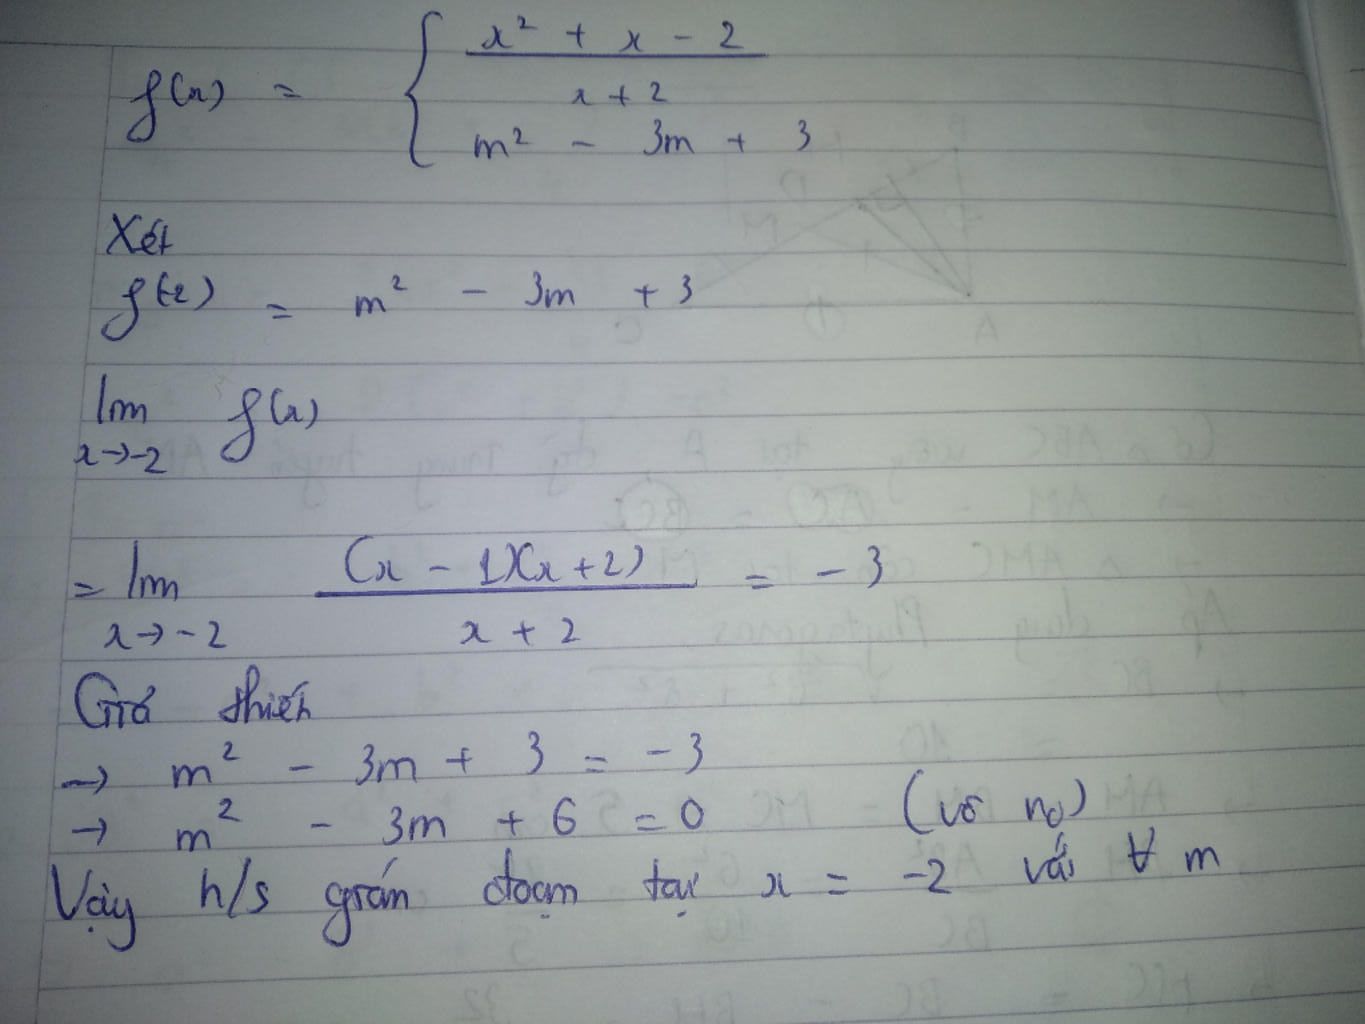 f(x) = { x² + x - 2
x + 2
m² - 3m + 3
Xét
f(-2) = m² - 3m + 3
lim f(x)
x→-2
= lim (x - 1)(x + 2) = -3
x→-2 x + 2
Giả thiết
→ m² - 3m + 3 = -3
→ m² - 3m + 6 = 0 (vô no)
Vậy h/s gián đoạn tại x = -2 với ∀ m